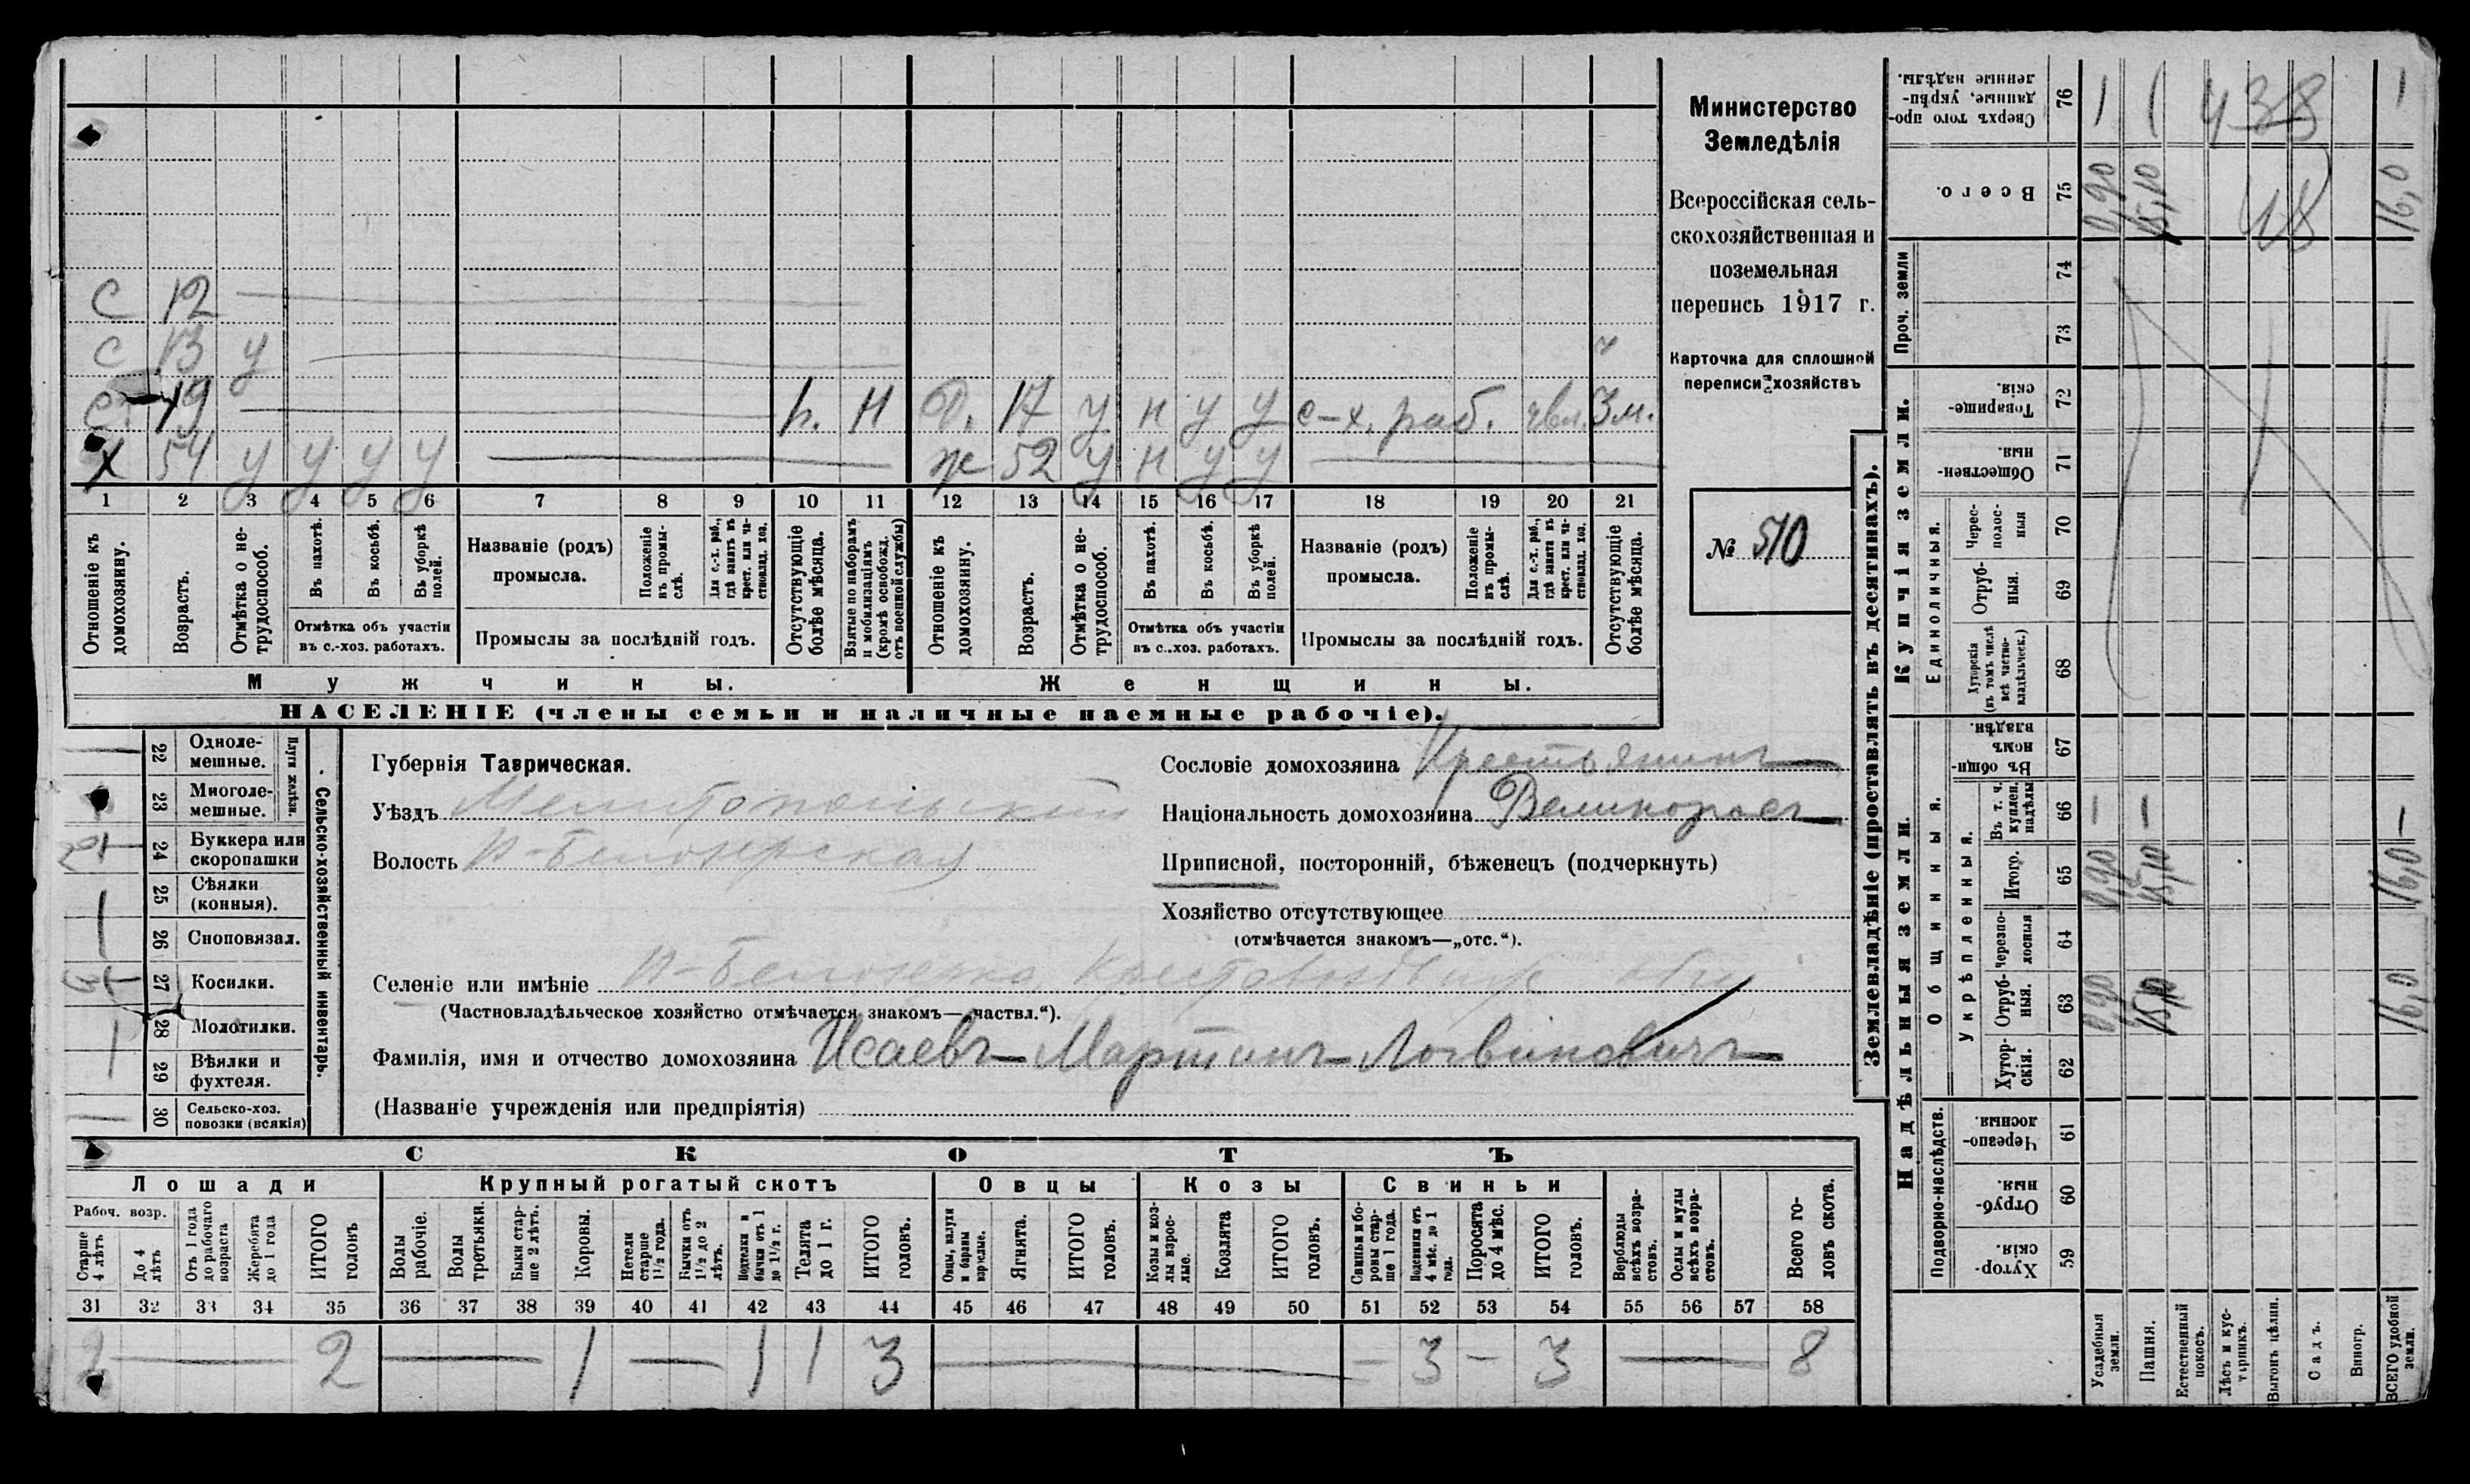 Министерство
Земледѣлія
Всероссійская сель-
скохозяйственная и
поземельная
перепись 1917 г.
Карточка для сплошной
переписи хозяйствъ
№ 510
С 12
С 13 у
С. 19 п. Н Д. 17 у н у у с-х. раб. 3 м.
Х 54 у у у у ж 52 у н у у
1 2 3 4 5 6 7 8 9 10 11 12 13 14 15 16 17 18 19 20 21
Отношеніе къ домохозяину.
Возрастъ.
Отмѣтка о не-трудоспособ.
Въ пахотѣ.
Въ косьбѣ.
Въ уборкѣ полей.
Отмѣтка объ участіи въ с.-хоз. работахъ.
Названіе (родъ) промысла.
Положеніе въ промы-слѣ.
Для с.-х. раб., гдѣ занятъ въ крест. или ча-стновлад. хоз.
Промыслы за послѣдній годъ.
Отсутствующіе болѣе мѣсяца.
Взятые по наборамъ и мобилизаціямъ (кромѣ освобожд. отъ военной службы)
Отношеніе къ домохозяину.
Возрастъ.
Отмѣтка о не-трудоспособ.
Въ пахотѣ.
Въ косьбѣ.
Въ уборкѣ полей.
Отмѣтка объ участіи въ с..хоз. работахъ.
Названіе (родъ) промысла.
Положеніе въ промы-слѣ.
Для с.-х. раб., гдѣ занята въ крест. или ча-стновлад. хоз.
Промыслы за послѣдній годъ.
Отсутствующіе болѣе мѣсяца.
Мужчины. Женщины.
НАСЕЛЕНІЕ (члены семьи и наличные наемные рабочіе).
Сельско-хозяйственный инвентарь.
Плуги желѣзн.
22 Одноле-мешные.
23 Многоле-мешные.
24 Буккера или скоропашки
25 Сѣялки (конныя).
26 Сноповязал.
27 Косилки.
28 Молотилки.
29 Вѣялки и фухтеля.
30 Сельско-хоз. повозки (всякія)
Губернія Таврическая.
Уѣздъ Мелитопольскій
Волость Н-Бѣлозерская
Сословіе домохозяина Крестьянинъ
Національность домохозяина Великороссъ
Приписной, посторонній, бѣженецъ (подчеркнуть)
Хозяйство отсутствующее
(отмѣчается знакомъ—„отс.“).
Селеніе или имѣніе Н-Бѣлозерка
(Частновладѣльческое хозяйство отмѣчается знакомъ—„частвл.“).
Фамилія, имя и отчество домохозяина Исаевъ Мартинъ Логвиновичъ
(Названіе учрежденія или предпріятія)
СКОТЪ
Лошади Крупный рогатый скотъ Овцы Козы Свиньи
Рабоч. возр.
Старше 4 лѣтъ
До 4 лѣтъ
Отъ 1 года до рабочаго возраста
Жеребята до 1 года
ИТОГО головъ
Волы рабочіе.
Волы третьяки.
Быки стар-ше 2 лѣтъ.
Коровы.
Нетели старше 1½ года.
Бычки отъ 1½ до 2 лѣтъ.
Подтелки и бычки отъ 1 до 1½ г.
Телята до 1 г.
ИТОГО головъ.
Овцы, валухи и бараны взрослые.
Ягнята.
ИТОГО головъ.
Козы и коз-лы взрос-лые.
Козлята
ИТОГО головъ.
Свиньи и бо-ровы стар-ше 1 года.
Подсвинки отъ 4 мѣс. до 1 года.
Поросята до 4 мѣс.
ИТОГО головъ.
Верблюды всѣхъ возра-стовъ.
Ослы и мулы всѣхъ возра-стовъ.
Всего го-ловъ скота.
31 32 33 34 35 36 37 38 39 40 41 42 43 44 45 46 47 48 49 50 51 52 53 54 55 56 57 58
2 2 1 1 1 3 3 3 8
Землевладѣніе (проставлять въ десятинахъ).
Надѣльныя земли. Купчія земли. Проч. земли
Подворно-наслѣдств. Общинныя. Укрѣпленныя. Единоличныя.
Сверхъ того про-данные, укрѣп-ленные надѣлы. 76 4 38
Всего. 75 0,90 15,10 16,0
74
73
Товарище-скія. 72
Обществен-ныя. 71
Черес-полос-ныя 70
Отруб-ныя. 69
Хуторскія (въ томъ числѣ всѣ частно-владѣльческ.) 68
Въ общин-номъ владѣн. 67
Въ т. ч. куплен. надѣлы 66
Итого. 65 0,90 15,10 16,0
Черезпо-лосныя 64
Отруб-ныя. 63 0,90 15,10 16,0
Хутор-скія. 62
Черезпо-лосныя. 61
Отруб-ныя. 60
Хутор-скія. 59
Усадебныя земли.
Пашня.
Естественный покосъ.
Лѣсъ и кус-тарникъ.
Выгонъ цѣлин.
Садъ.
Виногр.
ВСЕГО удобной земли.